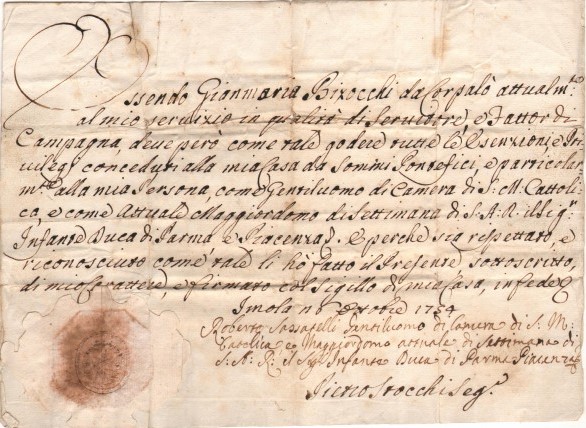 Essendo Gianmaria Birocchi da Corpalò attualm.te
al mio servizio in qualità di Servidore, e Fattor di
Campagna, deve però come tale godere tutte le Esenzioni e Pri
vilegj conceduti alla mia Casa da Sommi Pontefici, e particolar
m.te alla mia Persona, come Gentiluomo di Camera di S: M: Cattoli
ca, e come Attuale Maggiordomo di Settimana di S. A. R. il Sig.r
Infante Duca di Parma, e Piacenza &. e perche sia rispettato, e
riconosciuto come tale li hò fatto il Presente sottoscritto,
di mio Carattere, e firmato col Sigillo di mia Casa, in fede &
Imola Ottobre 1754
Roberto Sassatelli Gantiluomo di Camera di S: M:
Catolica e Maggiordomo attuale di Settimana di
S: A: R: il Sig.r Infante Duca di Parma Piacenza &
Pietro Stocchi Seg.